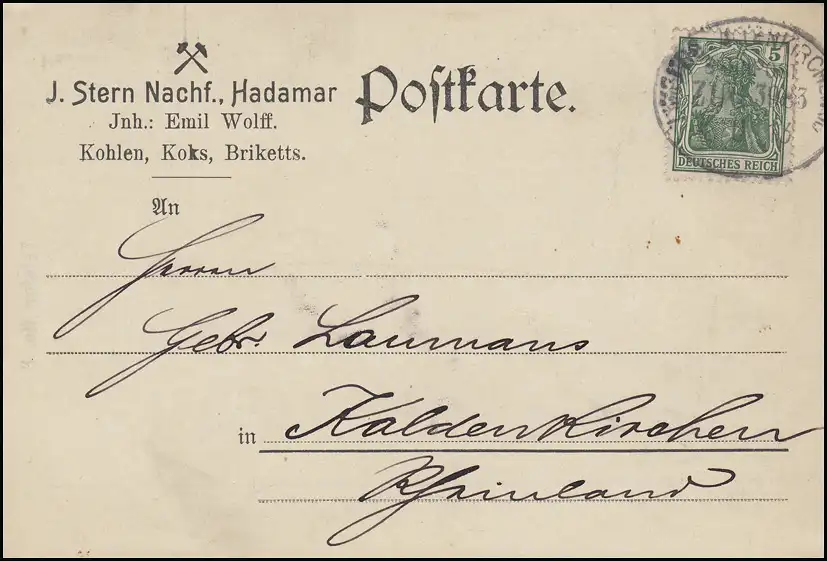 J. Stern Nachf., Hadamar
Jnh.: Emil Wolff.
Kohlen, Koks, Briketts.
Postkarte.
5
DEUTSCHES REICH
An
Herren
Gebr. Laumans
in Kaldenkirchen
Rheinland